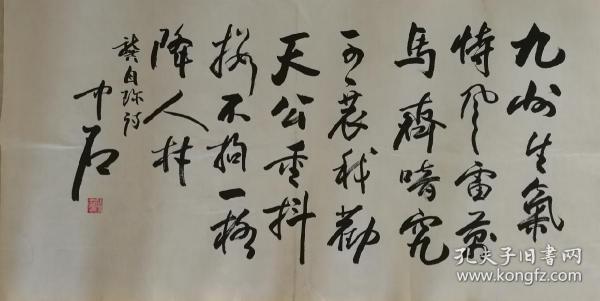 九州生氣
恃風雷萬
馬齊喑究
可哀我勸
天公重抖
擻不拘一格
降人材
龔自珍詩
中石
孔夫子旧书网
www.kongfz.com